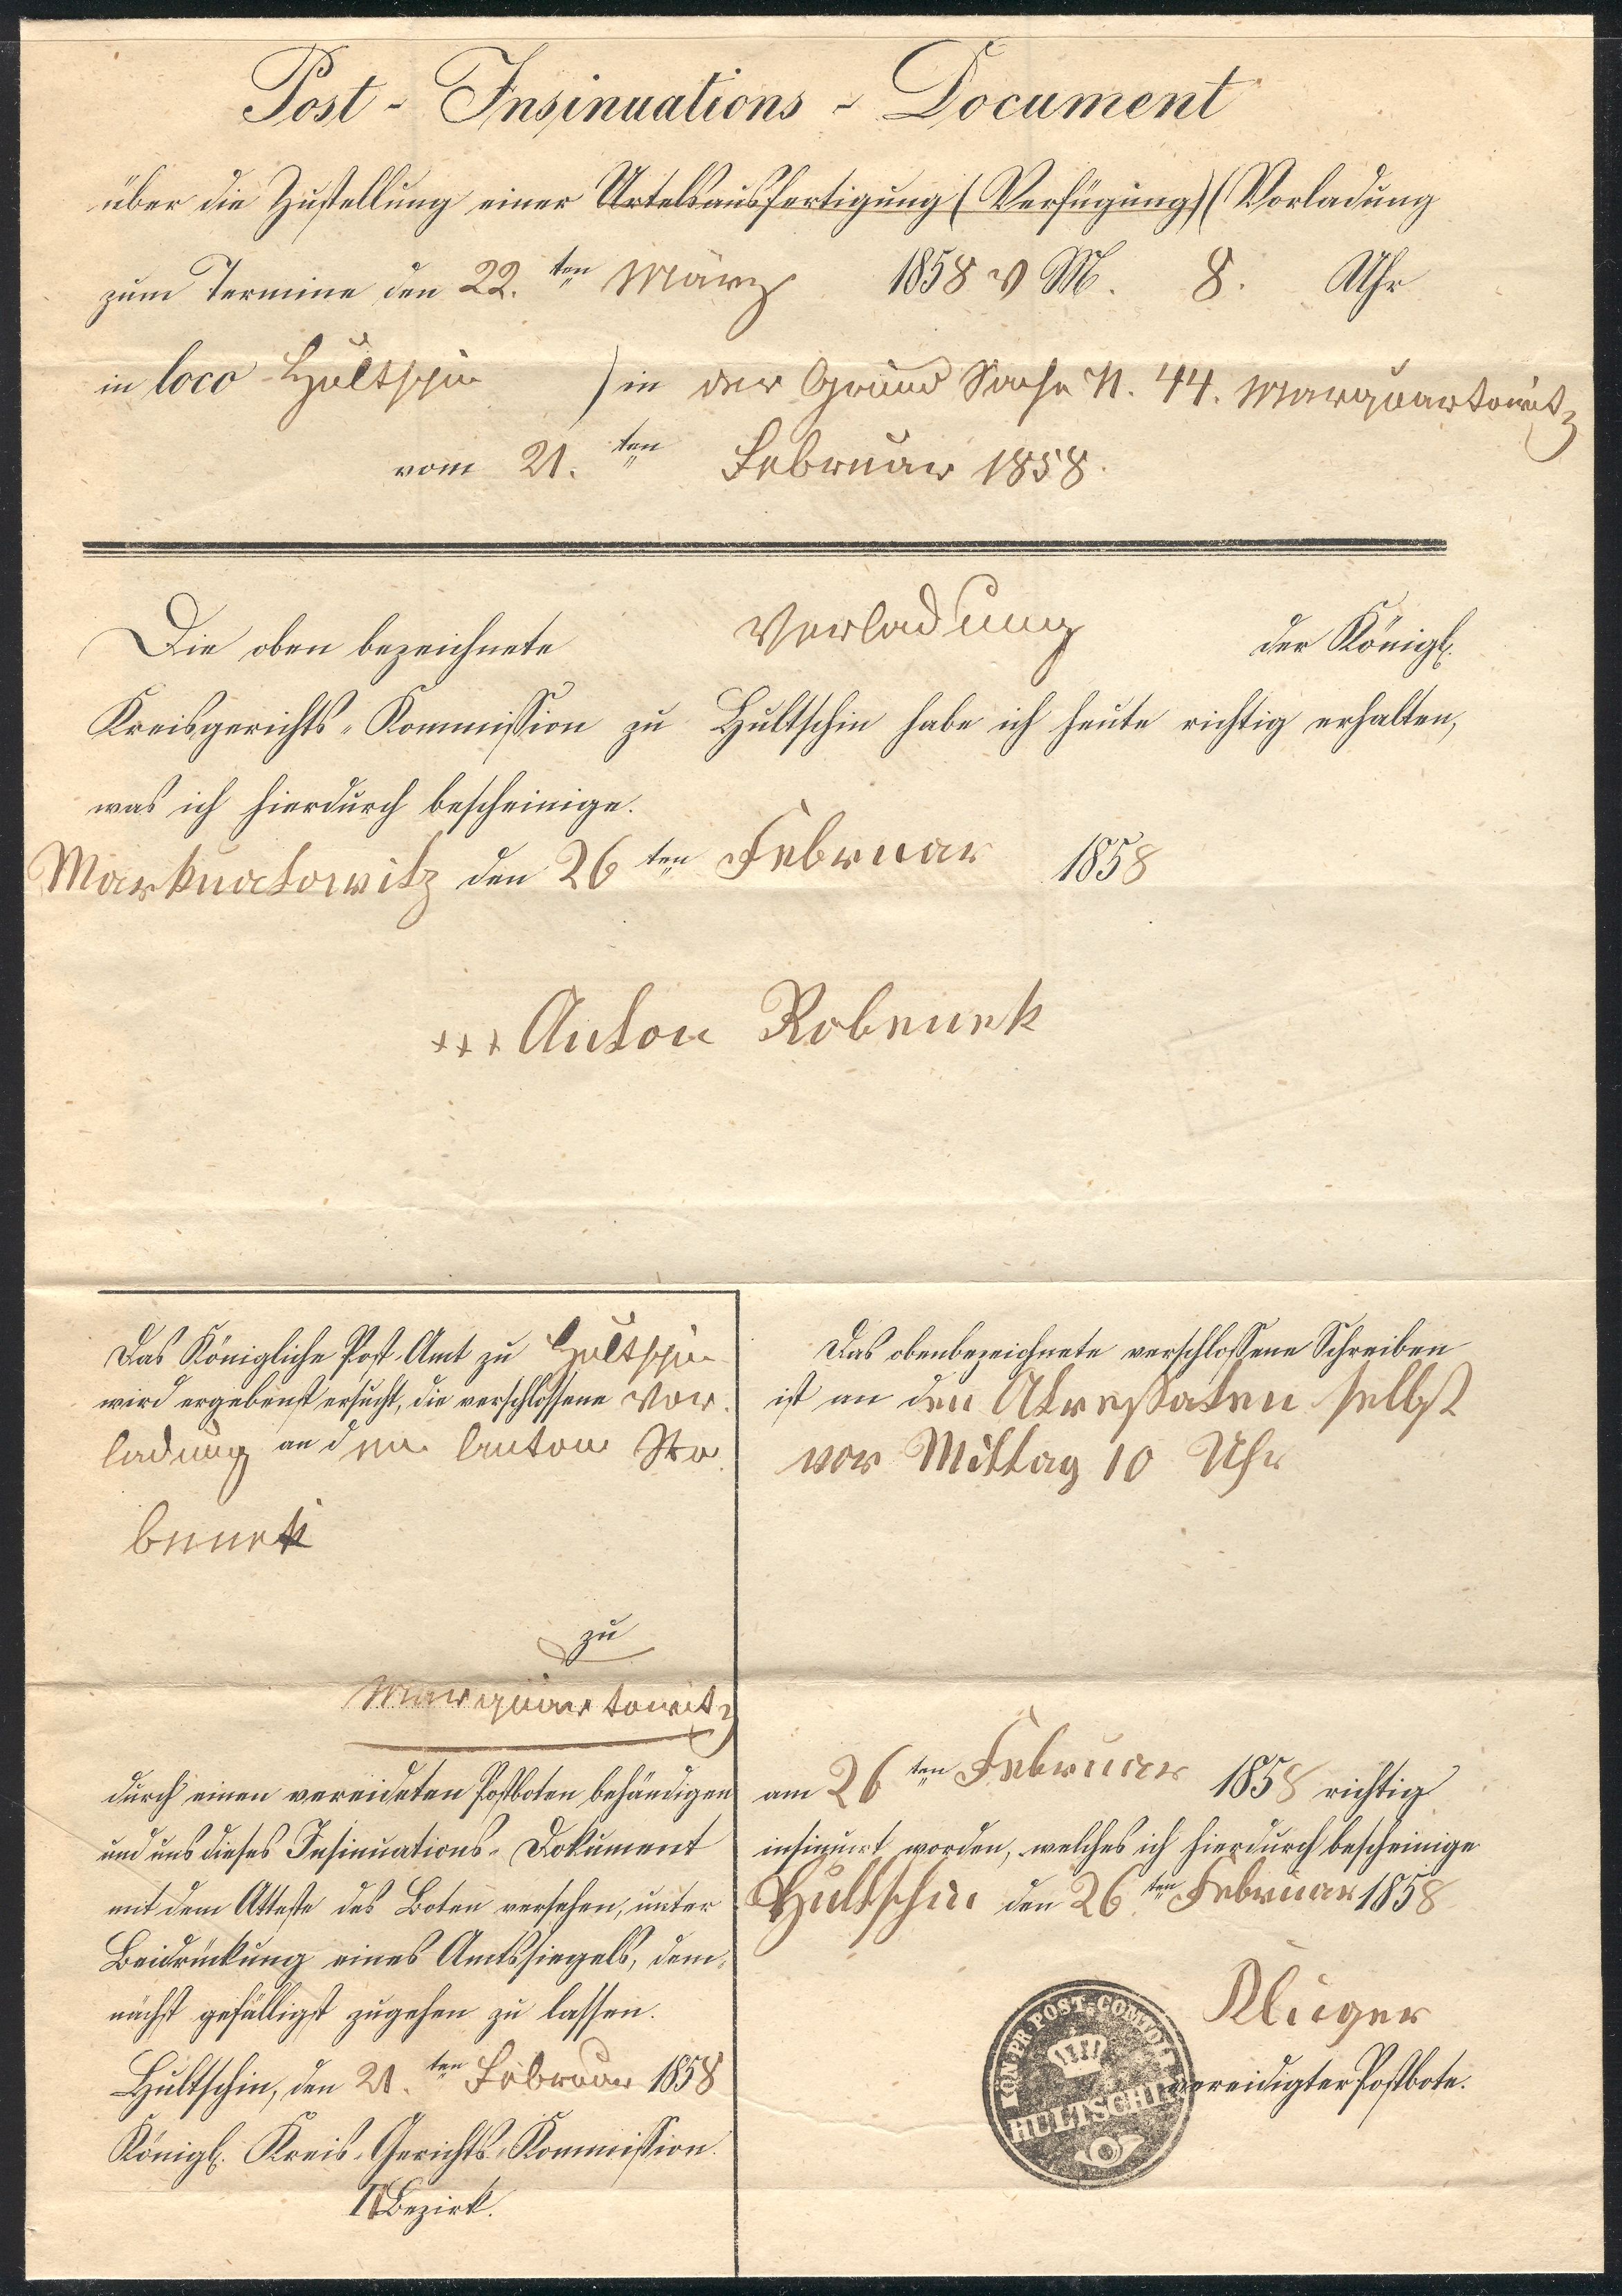 Post - Insinuations - Document
über die Zustellung einer Urtelsausfertigung (Verfügung) (Vorladung
zum Termine den 22.ten März 1858 V M. 8. Uhr
in loco Hultschin ) in der Grund Sache N. 44. Marquartowitz
vom 21.ten Februar 1858.
Die oben bezeichnete Vorladung der Königl.
Kreisgerichts-Kommission zu Hultschin habe ich heute richtig erhalten,
was ich hierdurch bescheinige.
Markuatowitz den 26ten Februar 1858
+++ Anton Robenek
Das Königliche Post-Amt zu Hultschin
wird ergebenst ersucht, die verschlossene Vor-
ladung an den Anton Ro-
benek
zu
Marquartowitz
durch einen vereideten Postboten behändigen
und uns dieses Insinuations-Dokument
mit dem Atteste des Boten versehen, unter
Beidrückung eines Amtssiegels, dem-
nächst gefälligst zugehen zu lassen.
Hultschin, den 21.ten Februar 1858
Königl. Kreis-Gerichts-Kommission.
II Bezirk.
Das obenbezeichnete verschlossene Schreiben
ist an den Atressaten selbst
vor Mittag 10 Uhr
am 26ten Februar 1858 richtig
insinuirt worden, welches ich hierdurch bescheinige
Hultschin den 26.ten Februar 1858
Kluger
vereidigter Postbote.
KÖN. PR. POST-COMTOIR
HULTSCHIN